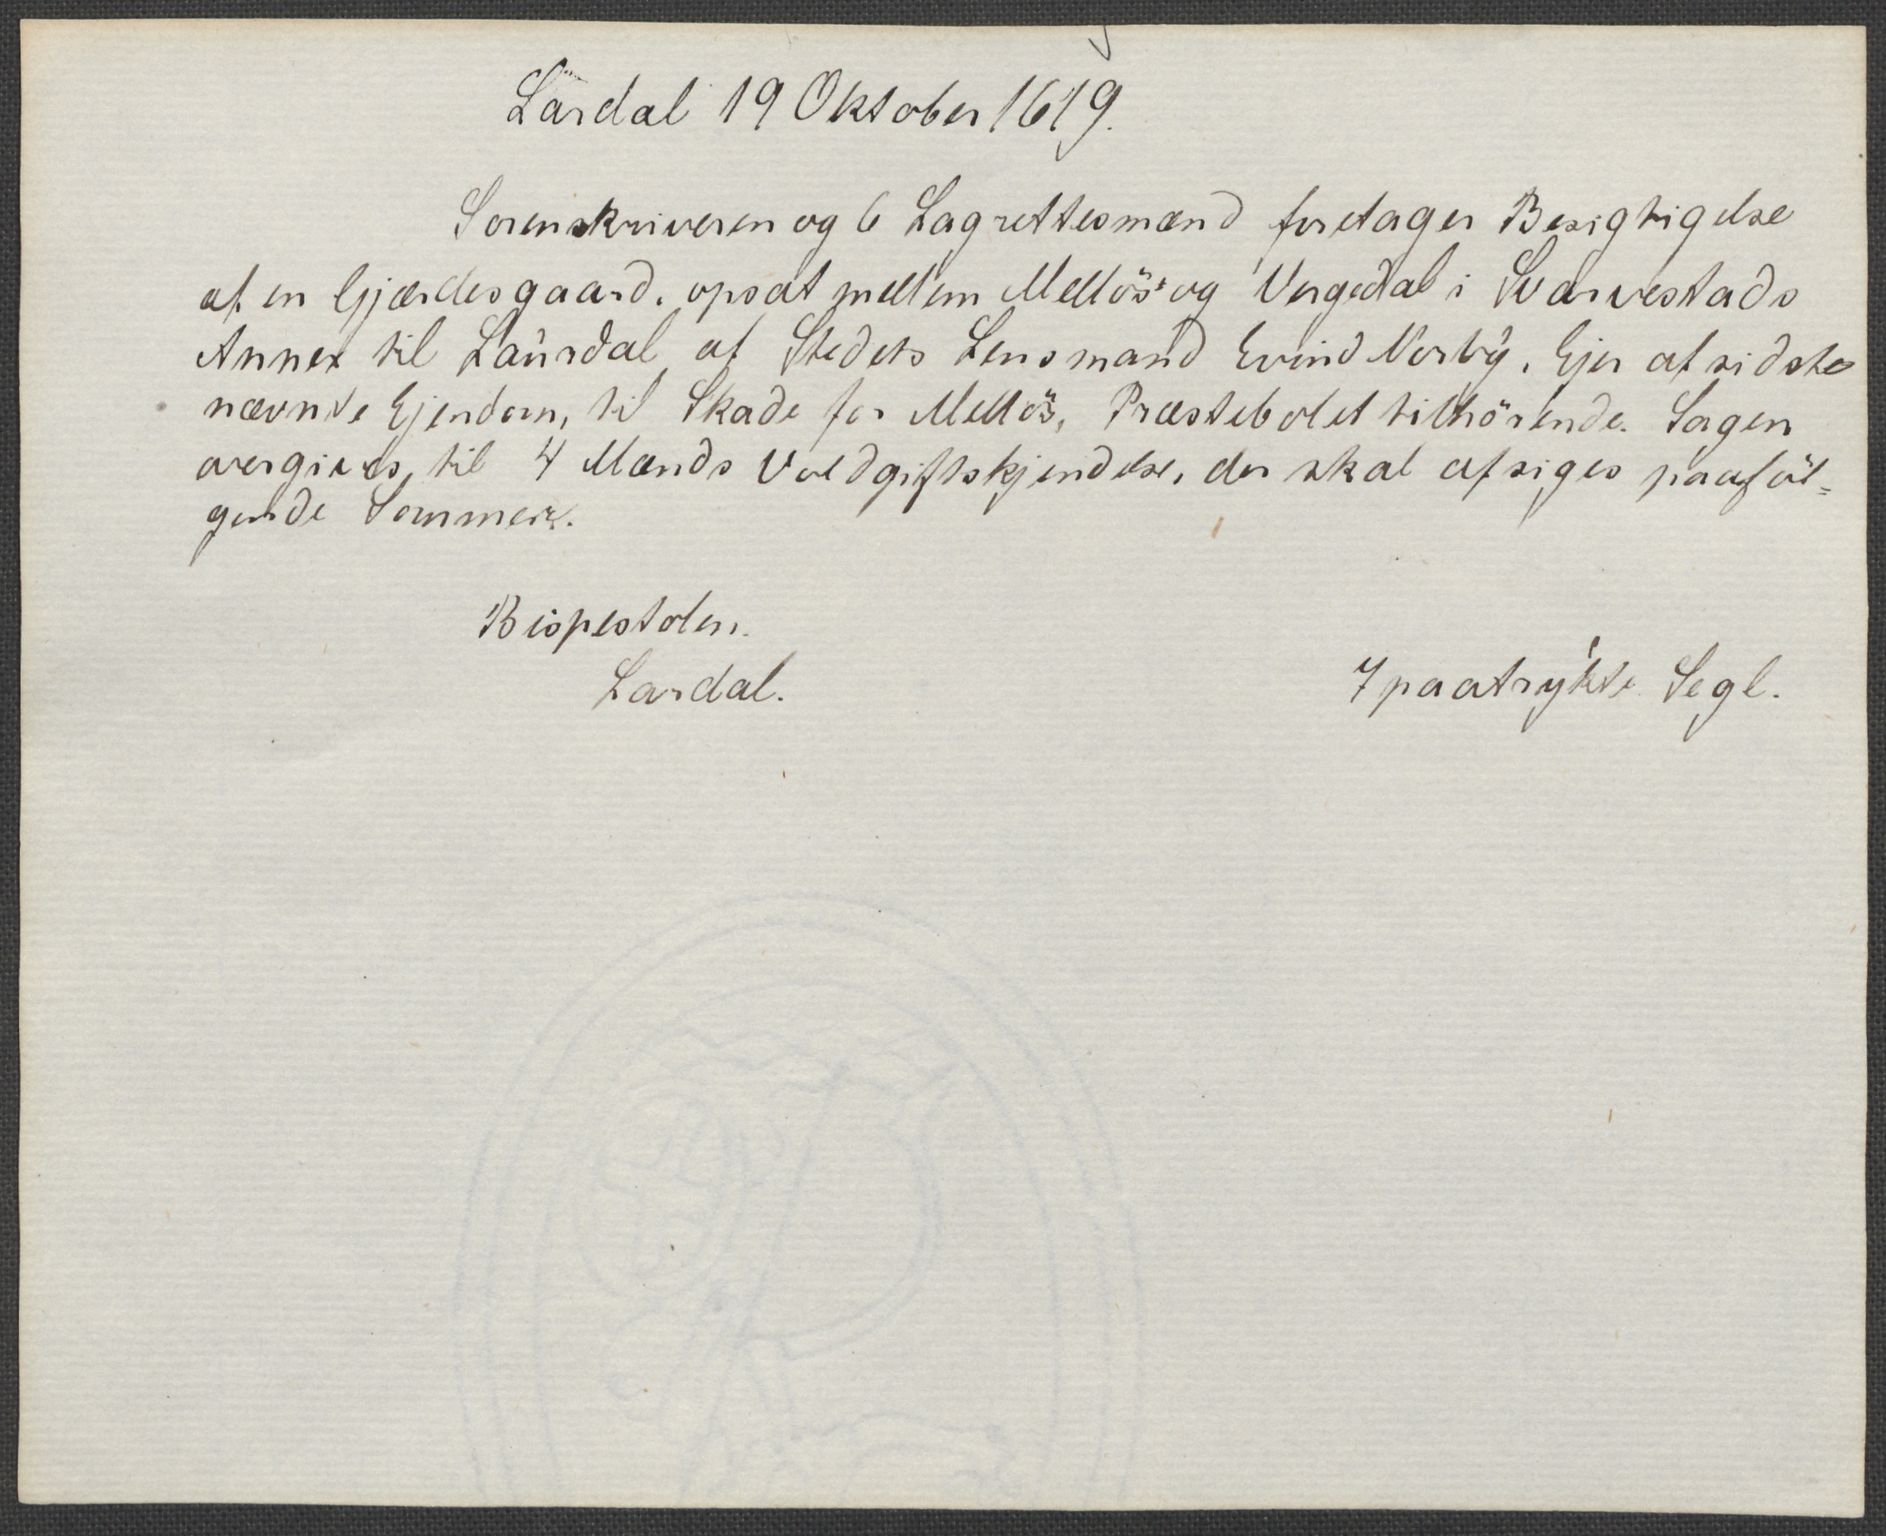 Lardal 19 Oktober 1619.
Sorenskriveren og 6 Lagrettesmænd foretager Besigtigelse
af en Gjærdesgaard, opsat mellem Mellös og Vergedal i Svarvestads
Annex til Laurdal af Stedets Lensmand Evind Norby, Ejer af sidst
nævnte Ejendom, til Skade for Mellös, Præstebolet tilhörende. Sagen
overgives til 4 Mænds Voldgiftskjendelse, der skal afsiges paaföl=
gende Sommer.
Bispestolen.
Lardal.
7 paatrykte Segl.